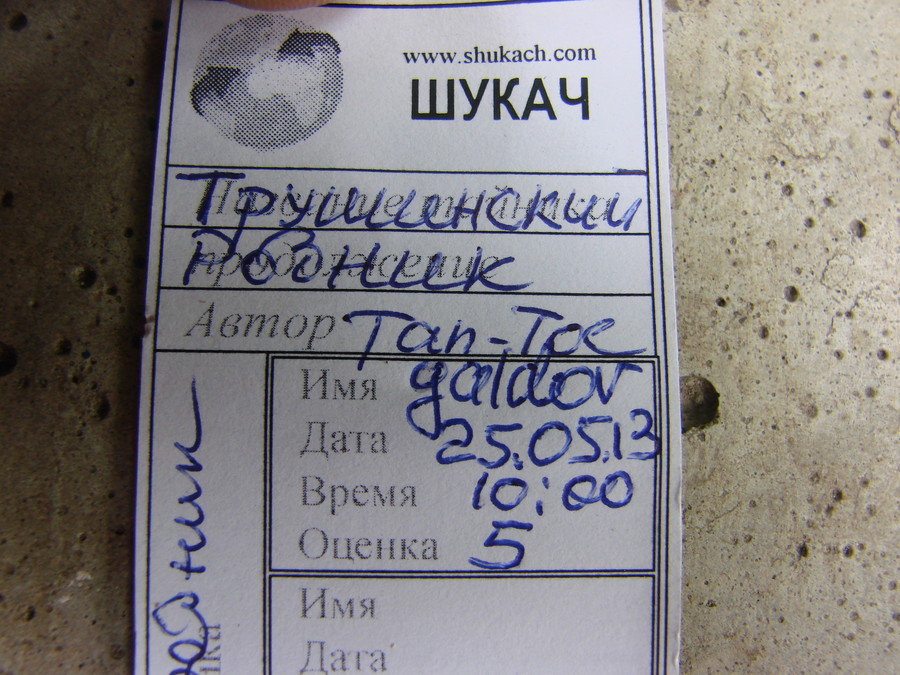 www.shukach.com
ШУКАЧ
Трушинский
Рödник
Автор Tan-Toe
Имя galdor
Дата 25.05.13
Время 10:00
Оценка 5
Имя
Дата